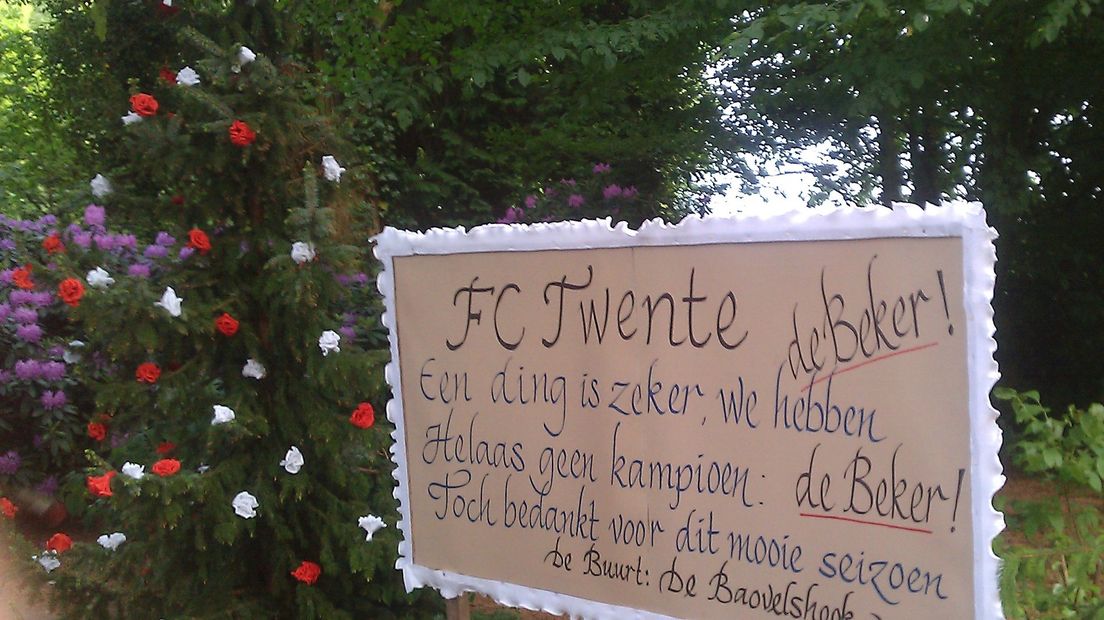 FC Twente
Een ding is zeker, we hebben de Beker!
Helaas geen kampioen: de Beker!
Toch bedankt voor dit mooie seizoen
De Buurt: De